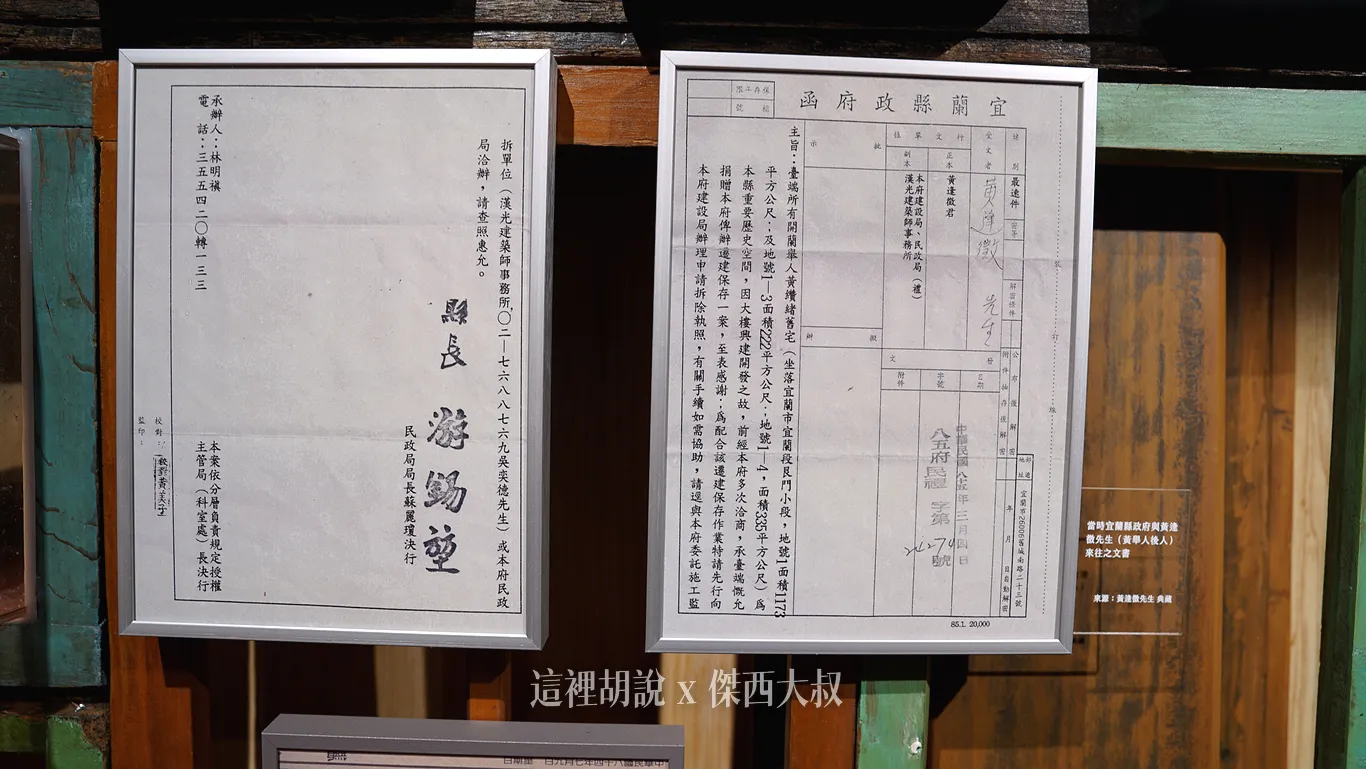 宜蘭縣政府函
保存年限
檔號
速別
最速件
密等
解密條件
公布後解密
附件抽存後解密
年月日自動解密
郵遞
地址
宜蘭市26006舊城南路二十三號
受文者
黃逢徵 先生
行文單位
正本
黃逢徵君
副本
本府建設局、民政局(禮)
漢光建築師事務所
發文
日期
中華民國八十五年三月四日
字號
八五府民禮字第 號
附件
批示
擬辦
主旨：臺端所有開蘭舉人黃纘緒舊宅(坐落宜蘭市宜蘭段艮門小段，地號1面積1173
平方公尺；及地號1—3面積222平方公尺；地號1—4，面積335平方公尺)為
本縣重要歷史空間，因大樓興建開發之故，前經本府多次洽商，承臺端慨允
捐贈本府俾辦遷建保存一案，至表感謝；為配合該遷建保存作業特請先行向
本府建設局辦理申請拆除執照，有關手續如需協助，請逕與本府委託施工監
85.1. 20,000
拆單位(漢光建築師事務所，〇二—七六八八七六九吳奕德先生)或本府民政
局洽辦，請查照惠允。
縣長 游錫堃
民政局局長蘇麗瓊決行
本案依分層負責規定授權
主管局(科室處)長決行
承辦人：林明禛
電話：三五五四二〇轉一三三
校對：
監印：
當時宜蘭縣政府與黃逢
徵先生(黃舉人後人)
來往之文書
來源：黃逢徵先生 典藏
這裡胡說 x 傑西大叔